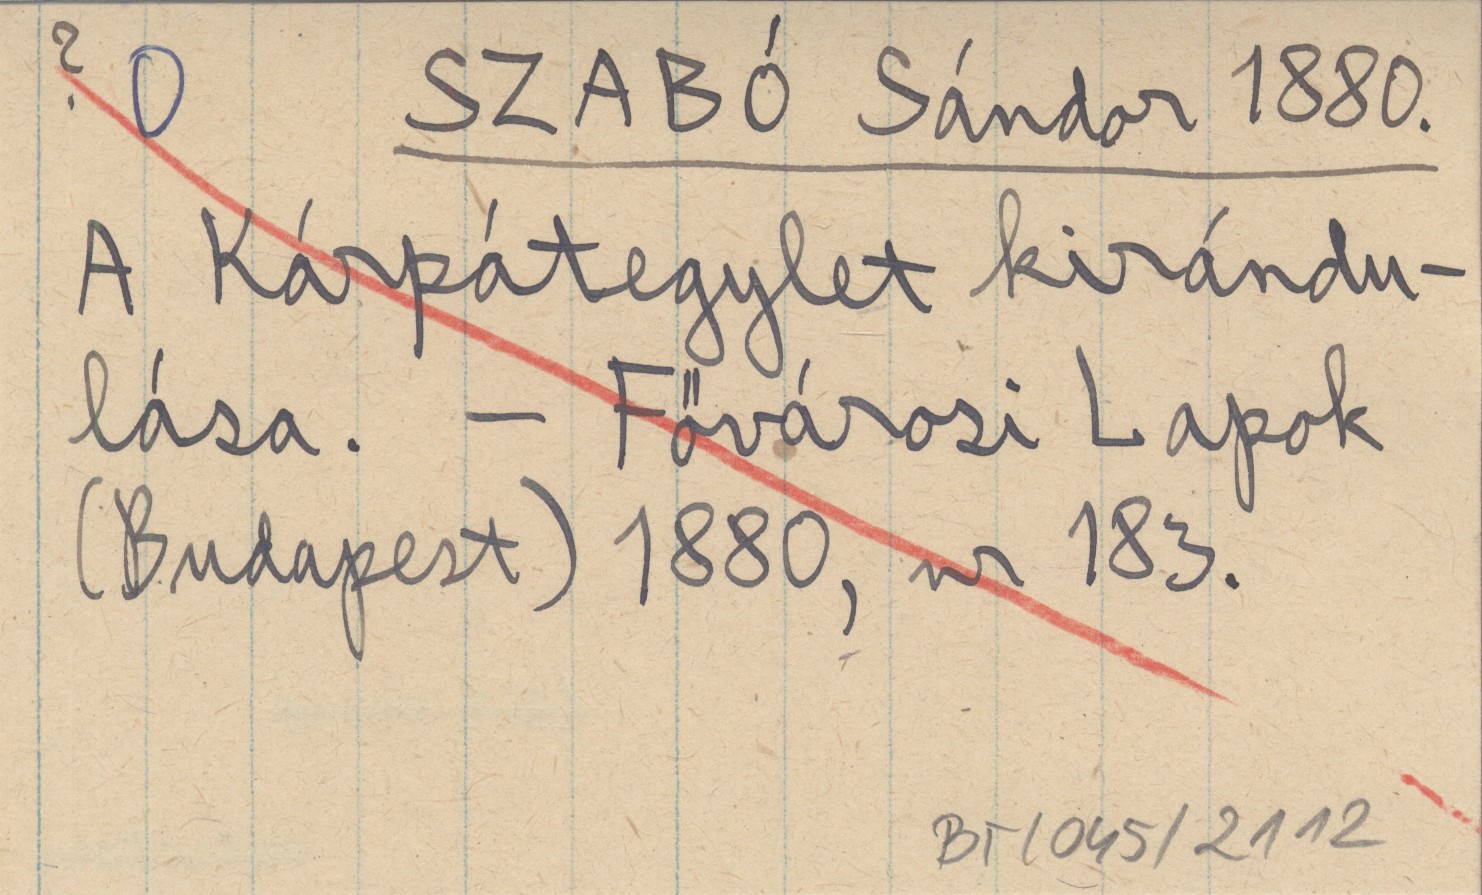 ? 0 SZABÓ Sándor 1880.
A Kárpátegylet kirándu-
lása. – Fővárosi Lapok
(Budapest) 1880, nr 183.
BT/045/2112